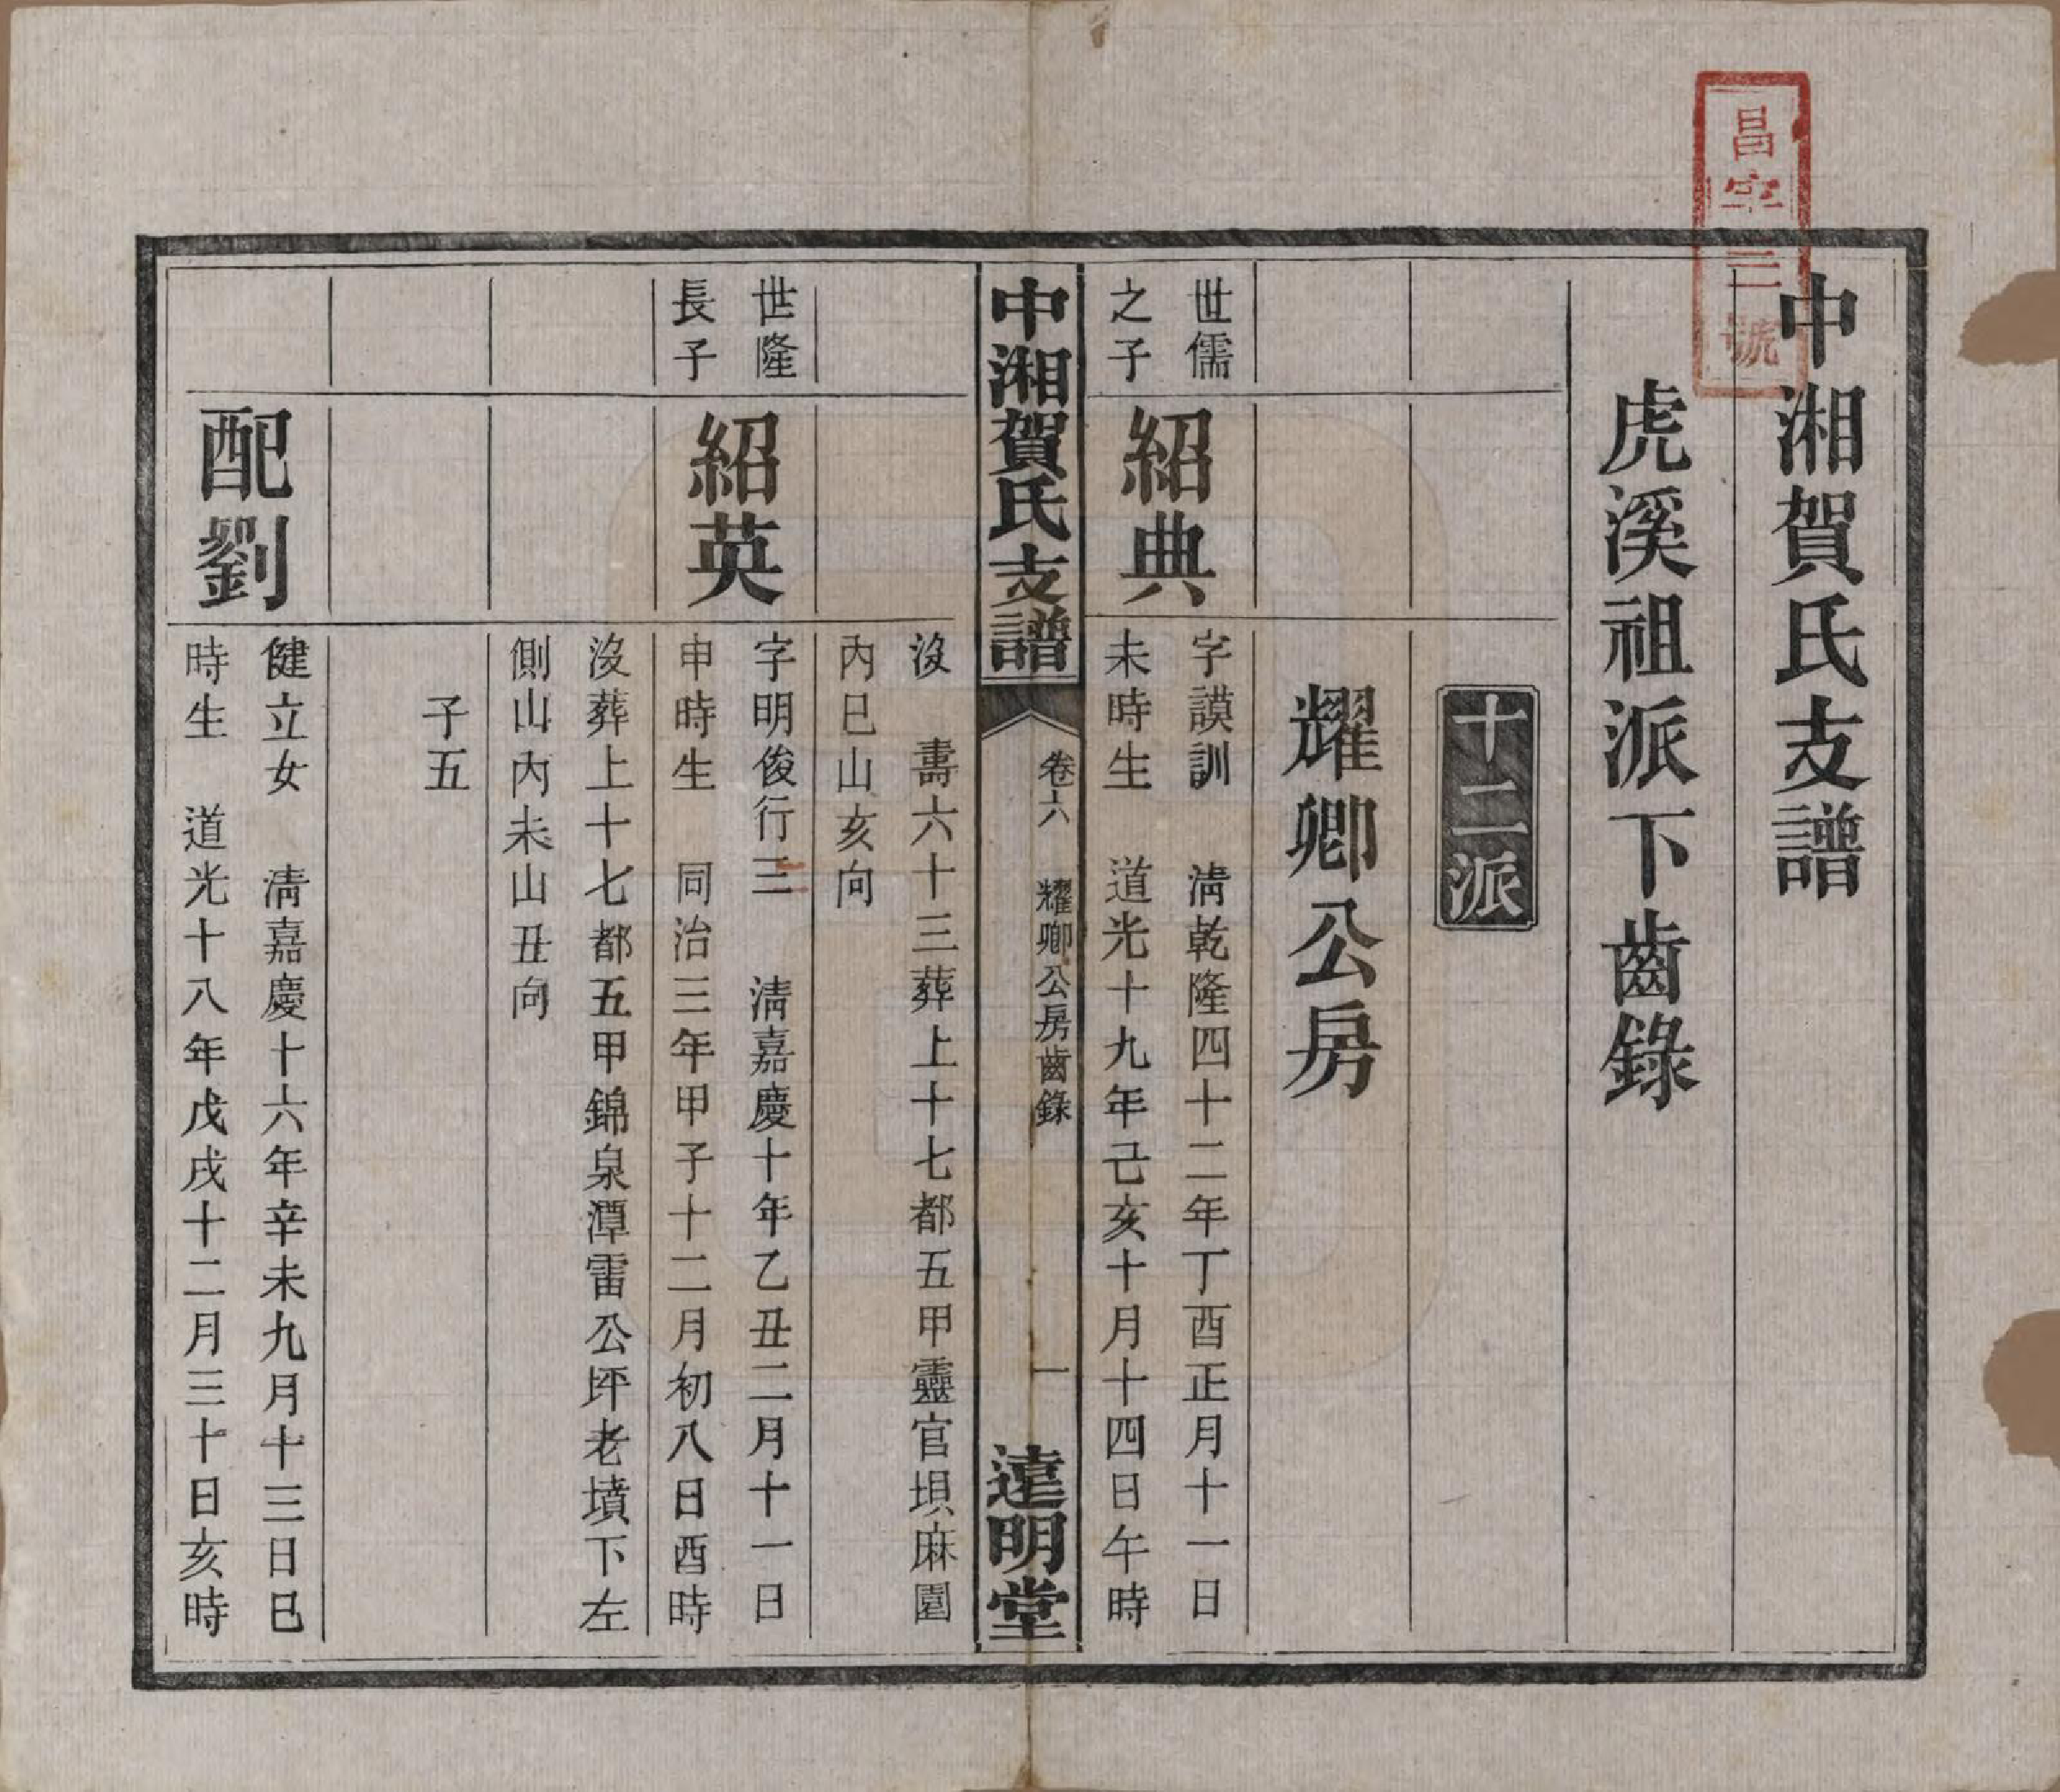 昌字三號
中湘賀氏支譜
虎溪祖派下齒錄
十二派
耀卿公房
世儒
之子
紹典
字謨訓 清乾隆四十二年丁酉正月十一日
未時生 道光十九年己亥十月十四日午時
中湘賀氏支譜
卷六 耀卿公房齒錄
一
達明堂
沒 壽六十三葬上十七都五甲靈官垻麻園
內巳山亥向
世隆
長子
紹英
字明俊行三 清嘉慶十年乙丑二月十一日
申時生 同治三年甲子十二月初八日酉時
沒葬上十七都五甲錦泉潭雷公坪老墳下左
側山內未山丑向
子五
配劉
健立女 清嘉慶十六年辛未九月十三日巳
時生 道光十八年戊戌十二月三十日亥時